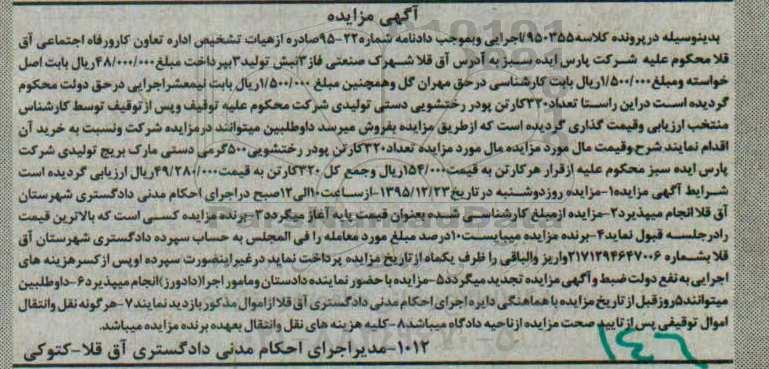 آگهی مزایده
بدینوسیله در پرونده کلاسه ۹۵۰۳۵۵/اجرایی وبموجب دادنامه شماره ۲۲-۹۵صادره از هیات تشخیص اداره تعاون کارورفاه اجتماعی آق
قلا محکوم علیه شرکت پارس ایده سبز به آدرس آق قلا شهرک صنعتی فاز۳نبش تولید۳بپرداخت مبلغ۴۸/۰۰۰/۰۰۰ریال بابت اصل
خواسته ومبلغ۱/۵۰۰/۰۰۰ریال بابت کارشناسی درحق مهران گل وهمچنین مبلغ ۱/۵۰۰/۰۰۰ریال بابت نیمعشراجرایی درحق دولت محکوم
گردیده است دراین راستا تعداد۳۲۰کارتن پودر رختشویی دستی تولیدی شرکت محکوم علیه توقیف وپس ازتوقیف توسط کارشناس
منتخب ارزیابی وقیمت گذاری گردیده است که ازطریق مزایده بفروش میرسد داوطلبین میتوانند درمزایده شرکت ونسبت به خرید آن
اقدام نمایند شرح وقیمت مال مورد مزایده مال مورد مزایده تعداد۳۲۰کارتن پودر رختشویی۵۰۰گرمی دستی مارک بریج تولیدی شرکت
پارس ایده سبز محکوم علیه ازقرار هرکارتن به قیمت۱۵۴/۰۰۰ریال وجمع کل ۳۲۰کارتن به قیمت۴۹/۲۸۰/۰۰۰ریال ارزیابی گردیده است
شرایط آگهی مزایده۱-مزایده روزدوشنبه در تاریخ۱۳۹۵/۱۲/۲۳-ازساعت۱۰الی۱۲صبح دراجرای احکام مدنی دادگستری شهرستان
آق قلا انجام میپذیرد۲-مزایده ازمبلغ کارشناسی شده بعنوان قیمت پایه آغاز میگردد۳-برنده مزایده کسی است که بالاترین قیمت
رادرجلسه قبول نماید۴-برنده مزایده میبایست۱۰درصد مبلغ مورد معامله را فی المجلس به حساب سپرده دادگستری شهرستان آق
قلا بشماره ۲۱۷۱۲۹۴۶۴۷۰۰۶واریز والباقی را ظرف یکماه ازتاریخ مزایده پرداخت نماید درغیراینصورت سپرده اوپس ازکسرهزینه های
اجرایی به نفع دولت ضبط وآگهی مزایده تجدید میگردد۵-مزایده با حضور نماینده دادستان ومامور اجرا(دادورز)انجام میپذیرد۶-داوطلبین
میتوانند۵روزقبل از تاریخ مزایده با هماهنگی دایره اجرای احکام مدنی دادگستری آق قلا ازاموال مذکور بازدید نمایند۷-هرگونه نقل وانتقال
اموال توقیفی پس از تایید صحت مزایده ازناحیه دادگاه میباشد۸-کلیه هزینه های نقل وانتقال بعهده برنده مزایده میباشد.
۱۰۱۲-مدیراجرای احکام مدنی دادگستری آق قلا-کتوکی